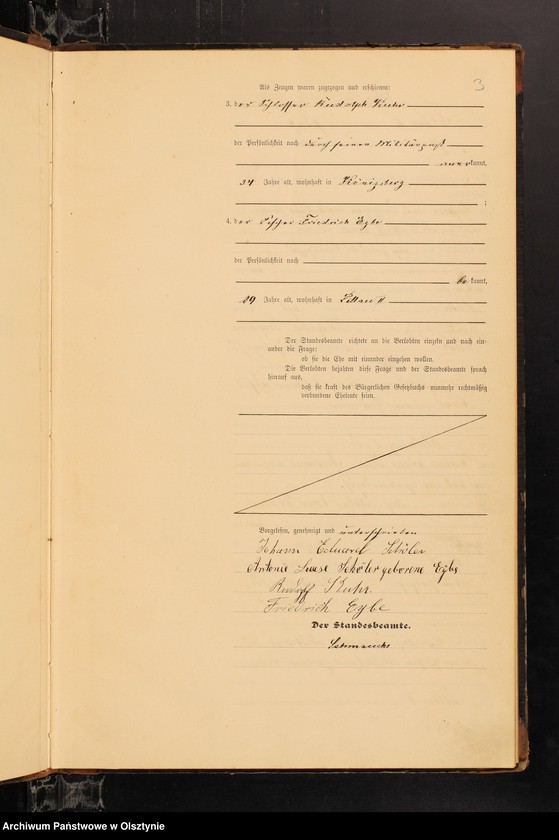 3
Als Zeugen waren zugezogen und erschienen:
3. der Schlosser Rudolph Kuhr
der Persönlichkeit nach durch seinen Militärpaß
anerkannt,
34 Jahre alt, wohnhaft in Königsberg
;
4. der Fischer Friedrich Eybe
der Persönlichkeit nach
be kannt,
29 Jahre alt, wohnhaft in Pillau II
Der Standesbeamte richtete an die Verlobten einzeln und nach ein-
ander die Frage:
ob sie die Ehe mit einander eingehen wollen.
Die Verlobten bejahten diese Frage und der Standesbeamte sprach
hierauf aus,
daß sie kraft des Bürgerlichen Gesetzbuchs nunmehr rechtmäßig
verbundene Eheleute seien.
Vorgelesen, genehmigt und unterschrieben
Johann Eduard Schöler
Antonie Luise Schöler geborene Eybe
Rudolf Kuhr.
Friedrich Eybe
Der Standesbeamte.
Archiwum Państwowe w Olsztynie